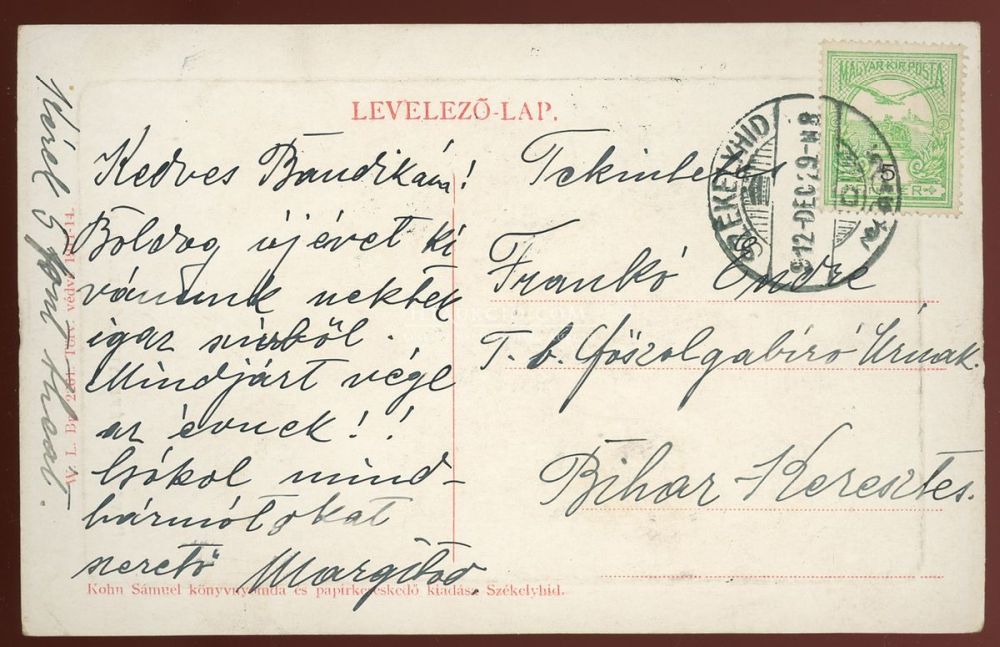 LEVELEZŐ-LAP.
MAGYAR KIR. POSTA
SZÉKELYHID
912-DEC 29
5
Kedves Bandikám!
Boldog újévet kí
vánunk nektek
igaz szivből.
Mindjárt vége
az évnek!!
Csókol mind-
hármótokat
szerető Margitod
Tekintetes
Frankó Endre
T. b. főszolgabíró Úrnak.
Bihar-Keresztes.
Kérek
W. L. Bp. 2261. Törv. védve 1911-14.
Kohn Sámuel könyvnyomda és papirkereskedő kiadása Székelyhid.